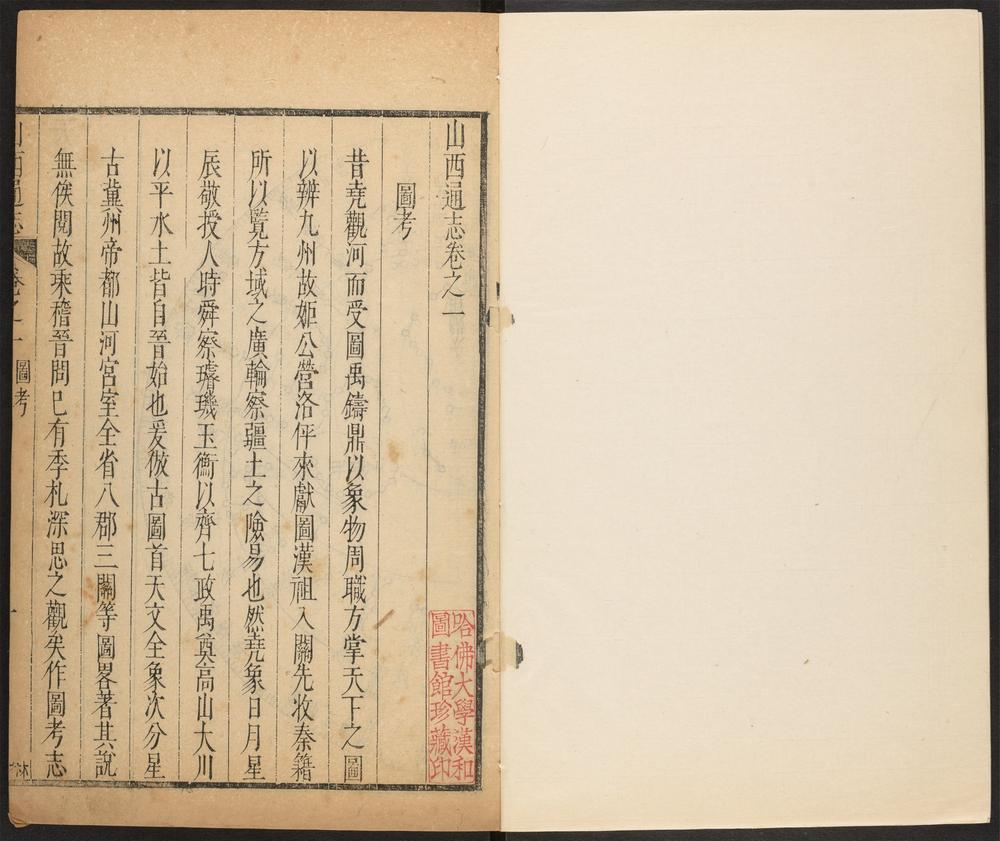 山西通志卷之一
圖考
昔堯觀河而受圖禹鑄鼎以象物周職方掌天下之圖
以辨九州故姬公營洛伻來獻圖漢祖入關先收秦籍
所以覽方域之廣輪察疆土之險易也然堯象日月星
辰敬授人時舜察璿璣玉衡以齊七政禹奠高山大川
以平水土皆自晉始也爰倣古圖首天文全象次分星
古冀州帝都山河宮室全省八郡三關等圖畧著其說
無俟閱故乘稽晉問已有季札深思之觀矣作圖考志
山西通志
卷之一
圖考
一
林
哈佛大學漢和
圖書館珍藏印